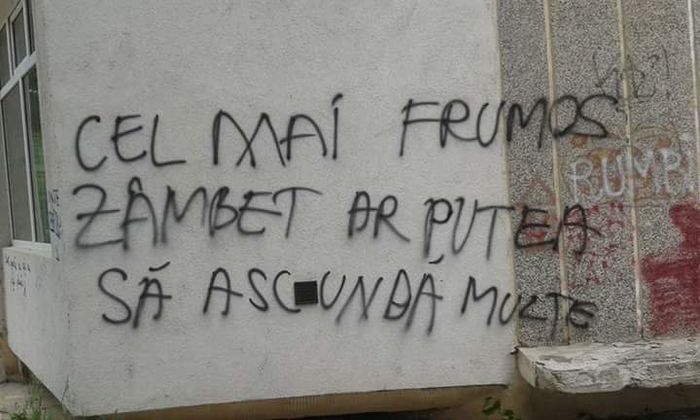 CEL MAI FRUMOS
ZÂMBET AR PUTEA
SĂ ASCUNDĂ MULTE
BUMBI